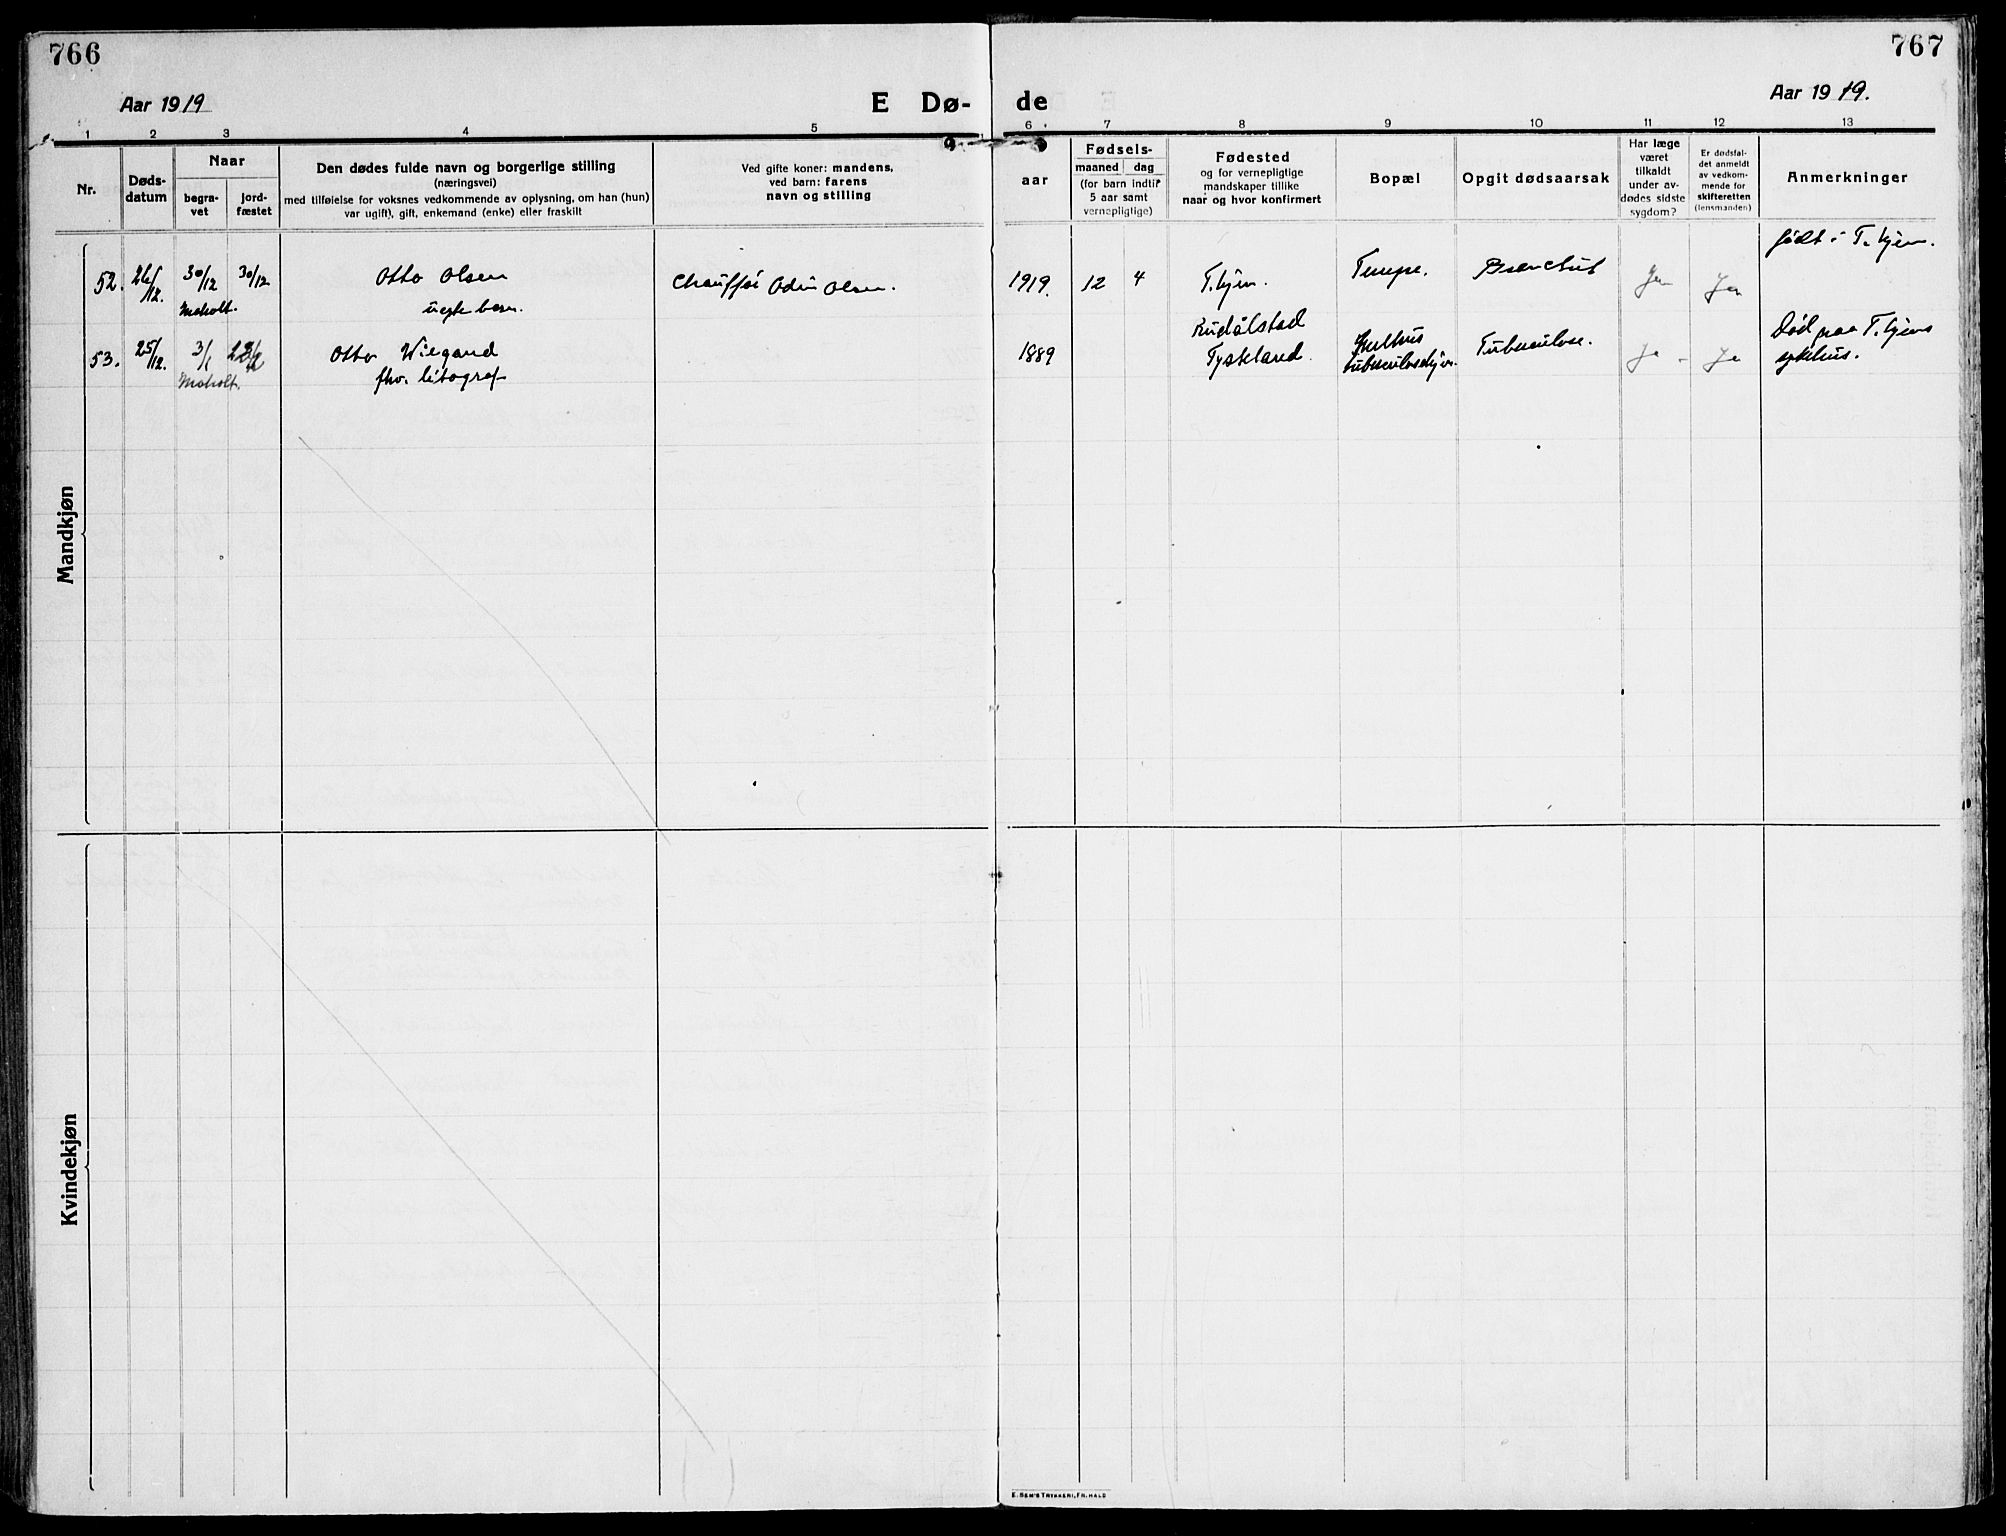 766
767
Aar 1919
E Dø-
de
Aar 1919.
1 2 3 4 5 6 7 8 9 10 11 12 13
Nr.
Døds-
datum
Naar
begra-
vet
jord-
fæstet
Den dødes fulde navn og borgerlige stilling
(næringsvei)
med tilføielse for voksnes vedkommende av oplysning, om han (hun)
var ugift), gift, enkemand (enke) eller fraskilt
Ved gifte koner: mandens,
ved barn: farens
navn og stilling
aar
Fødsels-
maaned dag
(for barn indtil
5 aar samt
vernepligtige)
Fødested
og for vernepligtige
mandskaper tillike
naar og hvor konfirmert
Bopæl
Opgit dødsaarsak
Har læge
været
tilkaldt
under av-
dødes sidste
sygdom?
Er dødsfal-
det anmeldt
av vedkom-
mende for
skifteretten
(lensmanden)
Anmerkninger
Mandkjøn
52. 26/12. 30/12 30/12 Otto Olsen Chauffør Odin Olsen. 1919. 12 4 T.hjem. Tempe. Ja Ja født i T.hjem.
Moholt. uegte barn.
53. 25/12. 3/1 Otto Wiegand 1889 Tyskland. Tuberkulose. Ja Ja Død paa T.hjems
Moholt. fhv. litograf sykehus.
Kvindekjøn
E. SEM'S TRYKKERI, FR.HALD